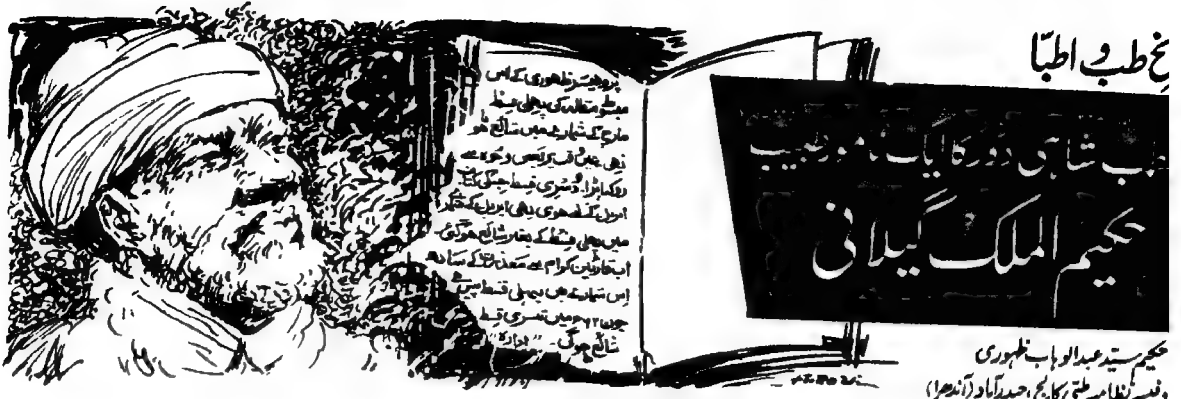 طب و اطبّا
شاہی دور کا ایک نامور طبیب
حکیم الملک گیلانی
حکیم سید عبدالوہاب ظہوری
نظامیہ طبی کالج، حیدرآباد (آندھرا)
پروفیسر ظہوری کے اس
مبسوط مقالہ کی پہلی قسط
مارچ کے شمارے میں شائع ہو
رہی تھی وجوہ سے
روکنا پڑا۔ دوسری قسط جس کی کتابت
اپریل کے لئے ہوئی تھی اپریل کے شمارے
میں پہلی قسط کے بغیر شائع ہوگئی۔
اب قارئین کرام سے معذرت کے ساتھ
اس شمارے میں پہلی قسط ہے
جون ۷۲ء میں تیسری قسط
شائع ہوگی۔ "ادارہ"